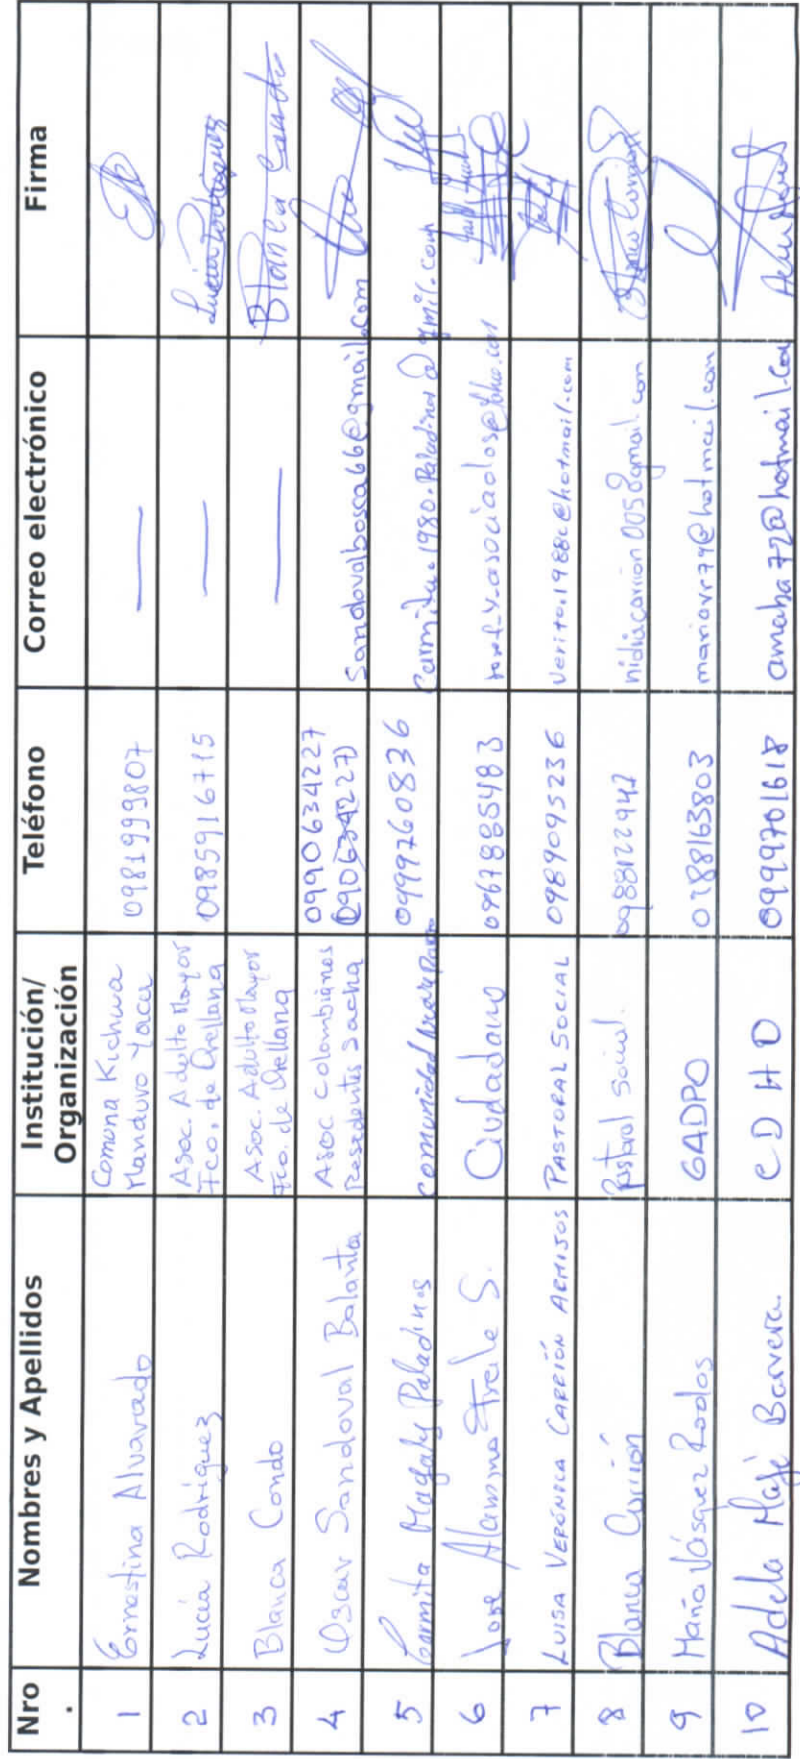 Nro. Nombres y Apellidos Institución/ Organización Teléfono Correo electrónico Firma
1 Ernestina Alvarado Comuna Kichwa Manduro Yacu 0981999807 —
2 Lucia Rodriguez Asoc. Adulto Mayor Fco. de Orellana 0985916715 — Lucia Rodriguez
3 Blanca Condo Asoc. Adulto Mayor Fco. de Orellana — Blanca Condo
4 Oscar Sandoval Balanta Asoc Colombianos Residentes Sacha 0990634227 Sandovalbosca66@gmail.com
5 Carmita Magaly Paladines Comunidad 0999760836
6 Jose Freile S. Ciudadano 0967885483
7 LUISA VERÓNICA CARRIÓN ARMIJOS PASTORAL SOCIAL 0989095236
8 Blanca Carrión Pastoral Social. 0988122942
9 María Vásquez GADPO mariavr79@hotmail.com
10 Adela Barrera. CDHO 0999701618 amaba72@hotmail.com